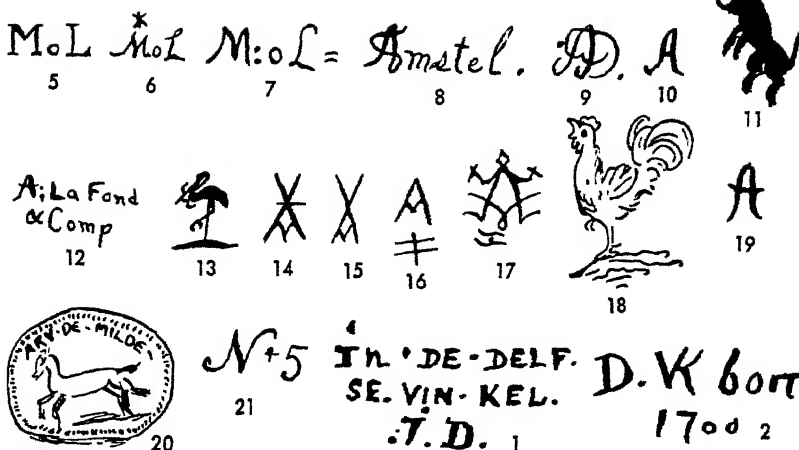 MoL MoL M:oL= Amstel. AD. A
5 6 7 8 9 10 11
A: La Fond
& Comp
12 13 14 15 16 17 18 19
A
ARY-DE-MILDE-
20
N+5
21
In'DE-DELF.
SE. VIN-KEL.
:I.D. 1
D.VK
1700 2